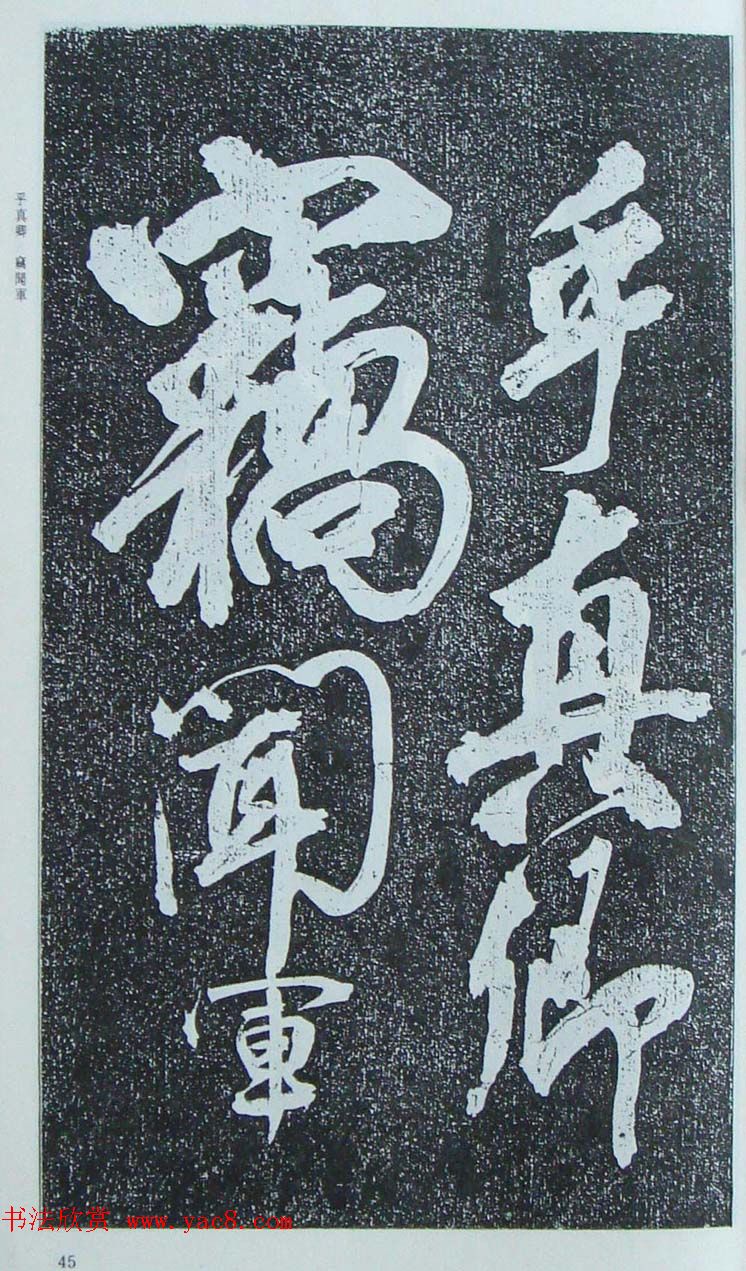 乎真卿
竊聞軍
乎真卿 竊聞軍
书法欣赏 www.yac8.com
45